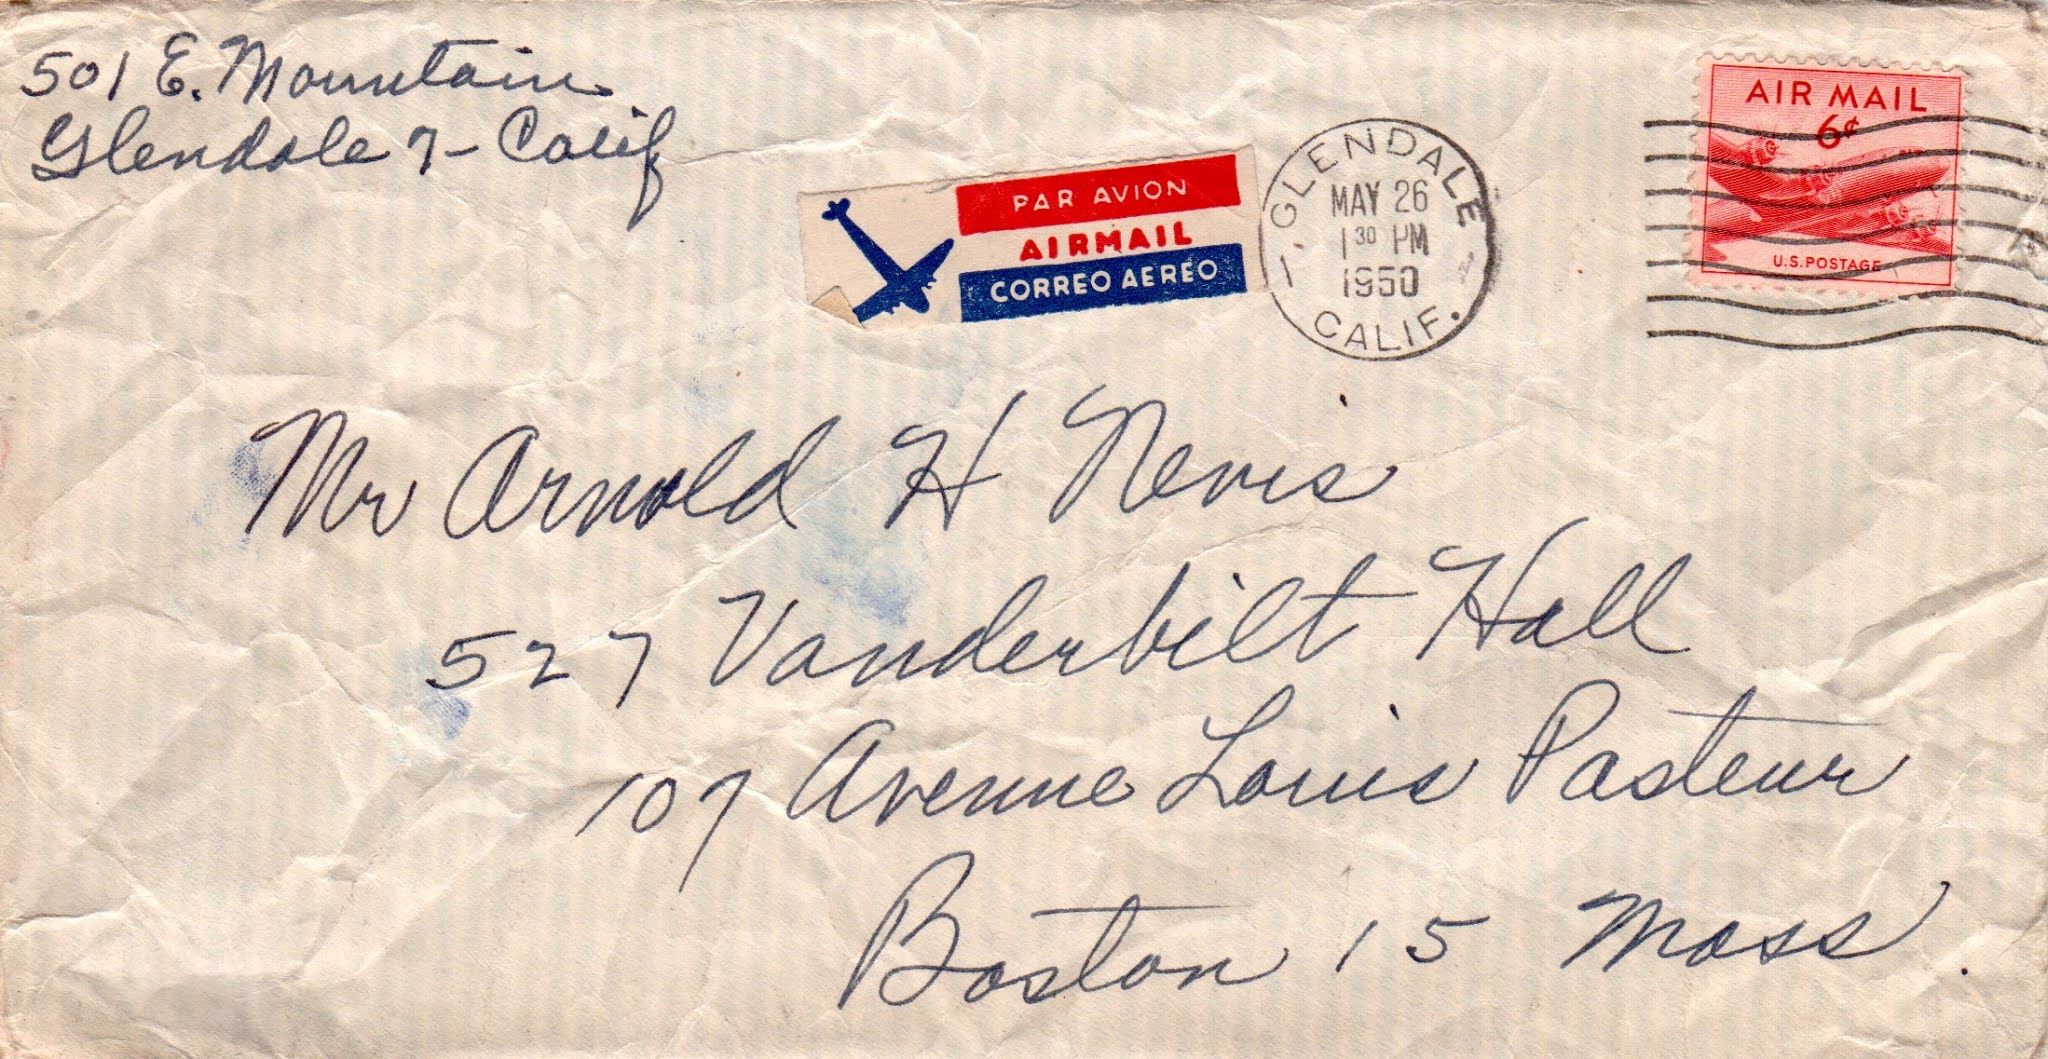 501 E. Mountain
Glendale 7 - Calif
PAR AVION
AIRMAIL
CORREO AEREO
GLENDALE
MAY 26
1 30 PM
1950
CALIF.
AIR MAIL
6¢
U.S. POSTAGE
Mr Arnold H Nevis
527 Vanderbilt Hall
107 Avenue Louis Pasteur
Boston 15 Mass.